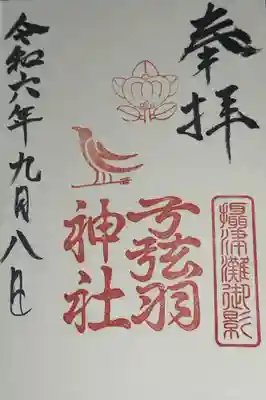 奉拝
攝津灘御影
弓弦羽
神社
令和六年九月八日